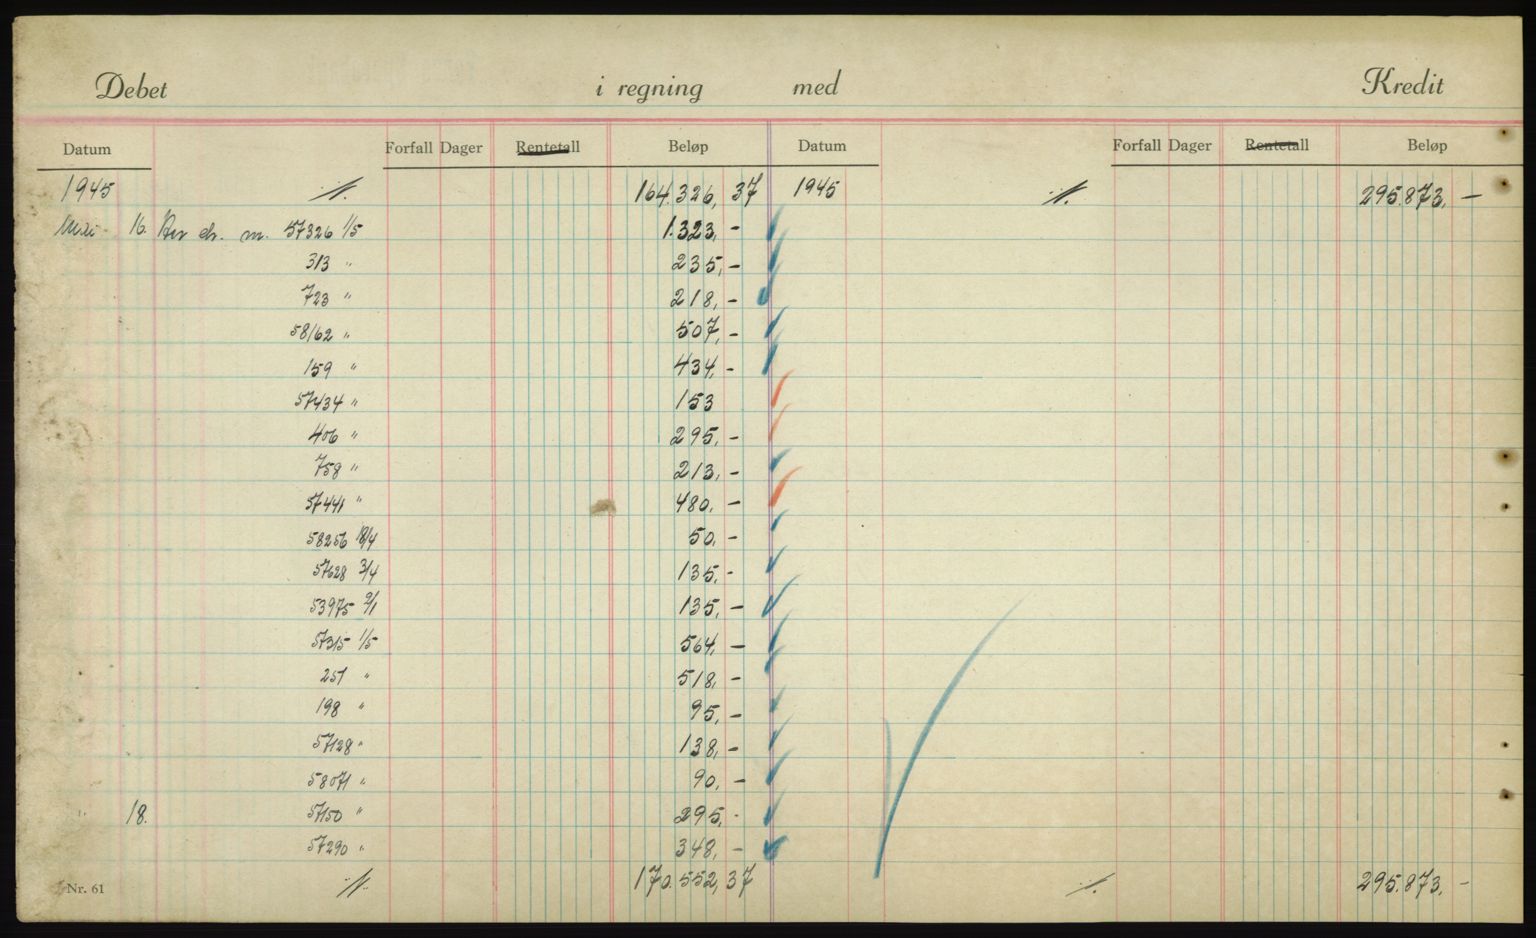 Debet i regning med Kredit
Datum Forfall Dager Rentetall Beløp Datum Forfall Dager Rentetall Beløp
1945 164.326,37 1945 295.873,-
Mai 16. m. 57326 1/5 1.323,-
313 " 235,-
723 " 218,-
58162 " 507,-
159 " 434,-
57434 " 153
406 " 295,-
758 " 213,-
57441 " 480,-
58256 18/4 50,-
57628 3/4 135,-
53975 2/1 135,-
57315 1/5 564,-
251 " 518,-
198 " 95,-
57128 " 138,-
58071 " 90,-
18. 57150 " 295,-
57290 " 348,-
Nr. 61 170.552,37 295.873,-